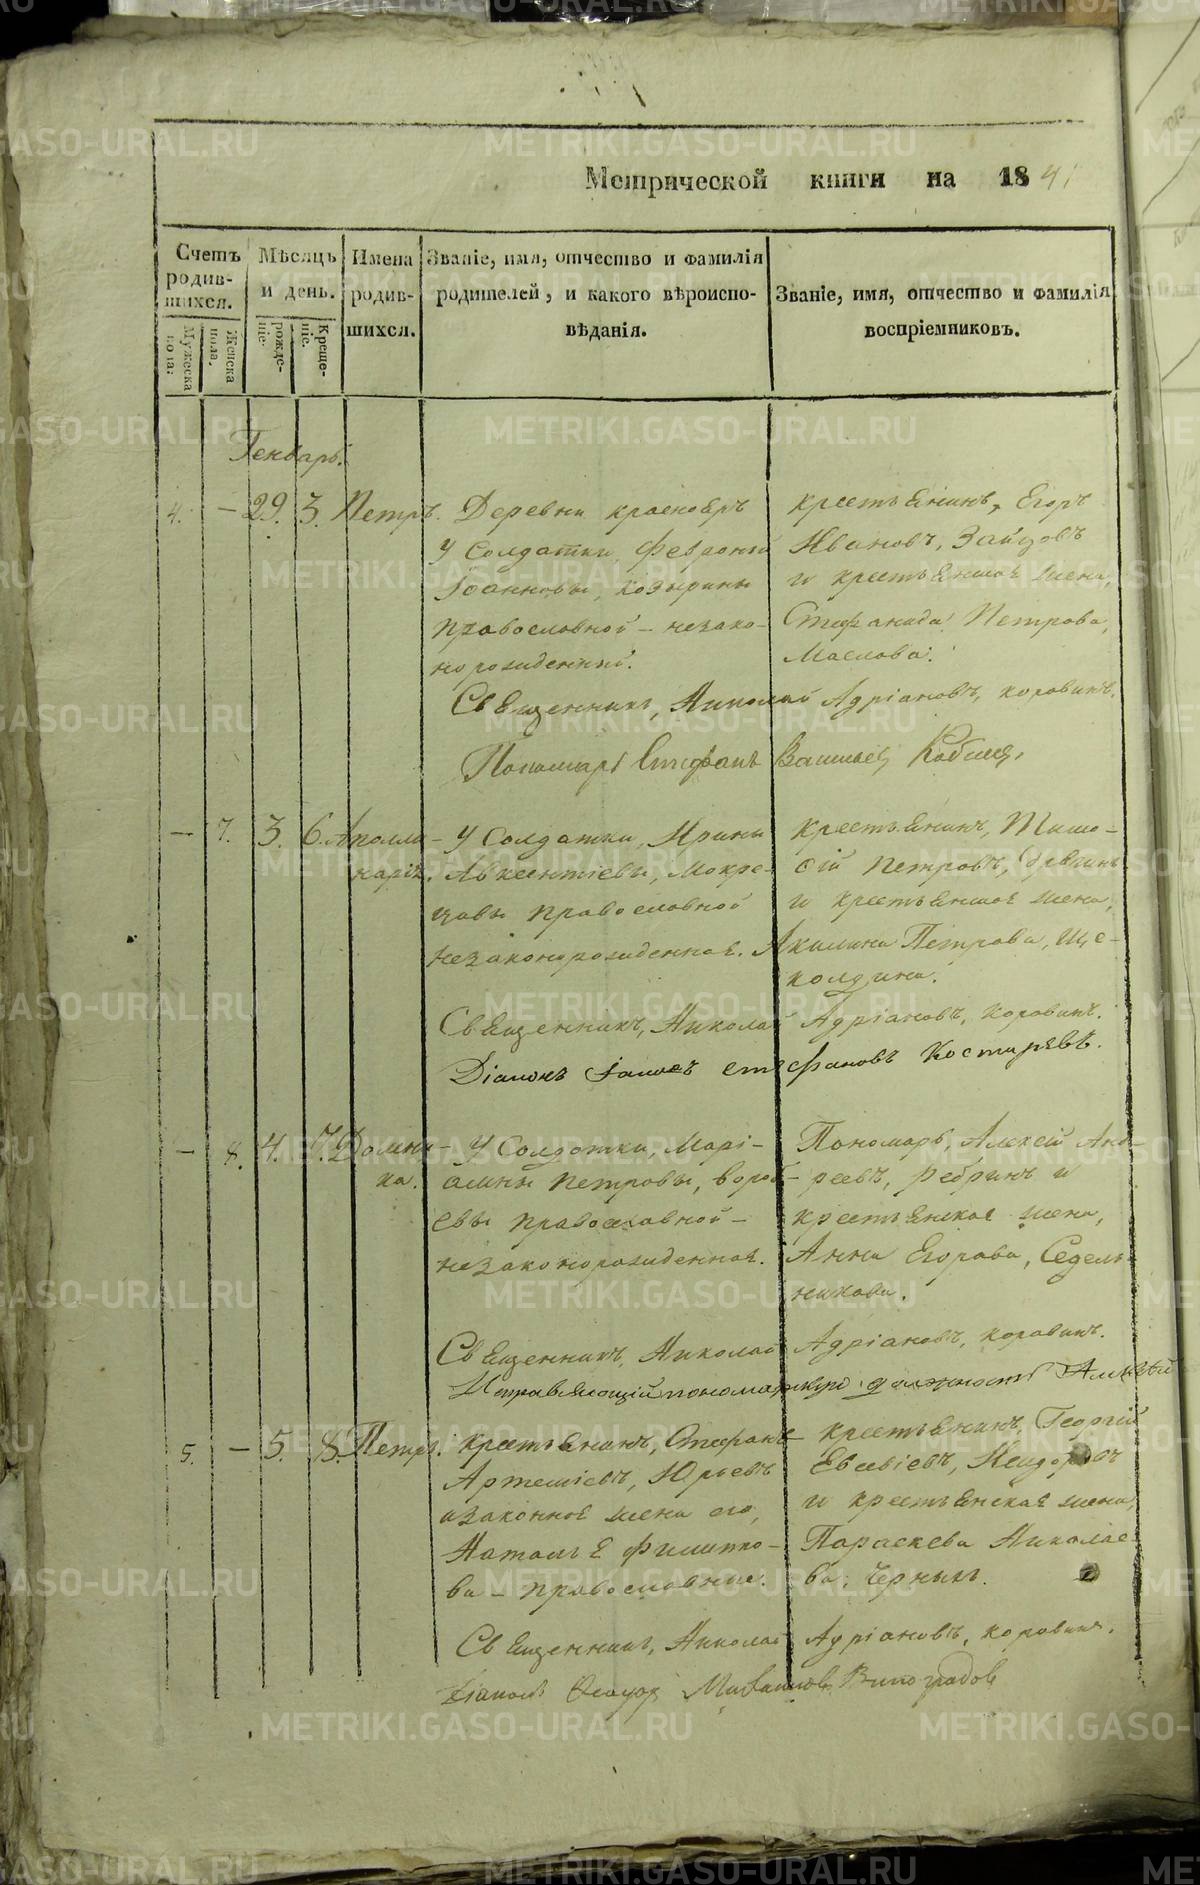 Метрической книги на 1841
Счетъ родив-шихся.
Мужеска пола.
Женска пола.
Мѣсяцъ и день.
рожде-ніе.
Креще-ніе.
Имена родив-шихся.
Званіе, имя, отчество и фамилія
родителей, и какого вѣроиспо-
вѣданія.
Званіе, имя, отчество и фамилія
воспріемниковъ.
Генварь.
4. — 29. 3. Петръ.
Деревни красноярт
У Солдатки, Февроніи
Іоанновы, Козырины
православной – незако-
норожденный.
крестьянинъ, Егоръ
Ивановъ, Зайцовъ
и крестьянская жена,
Стефанида Петрова,
Маслова.
Священникъ, Николай Адріановъ, Коровинъ.
Пономарь Стефанъ Васильев
— 7. 3. 6. Аполли-
нарія.
У Солдатки, Ирины
Авксентіевы, Мокре-
цовы православной
незаконорожденная.
крестьянинъ, Тимо-
фій Петровъ,
и крестьянская жена,
Акилина Петрова, Ще-
колдина.
Священникъ, Николай Адріановъ, Коровинъ.
Діаконъ Стефановъ Костаревъ.
— 8. 4. 7. Домни-
ка.
У Солдатки, Марі-
амны Петровы, вороб-
евы православной –
незаконорожденная.
Пономарь, Алексѣй Анд-
реевъ, Ребринъ и
крестьянская жена,
Анна Егорова, Седель-
никова.
Священникъ, Николай Адріановъ, Коровинъ.
Исправляющій пономарскую должность Алексѣй
5. — 5. 8. Петръ.
крестьянинъ, Стефанъ
Артеміевъ, Юрьевъ
изаконное жена его,
Наталья Филиппо-
ва – православные.
крестьянинъ, Георгій
Евсевіевъ,
и крестьянская жена,
Параскева Николае-
ва, Черныхъ.
Священникъ, Николай Адріановъ, Коровинъ.
Діаконъ Виноградов
METRIKI.GASO-URAL.RU